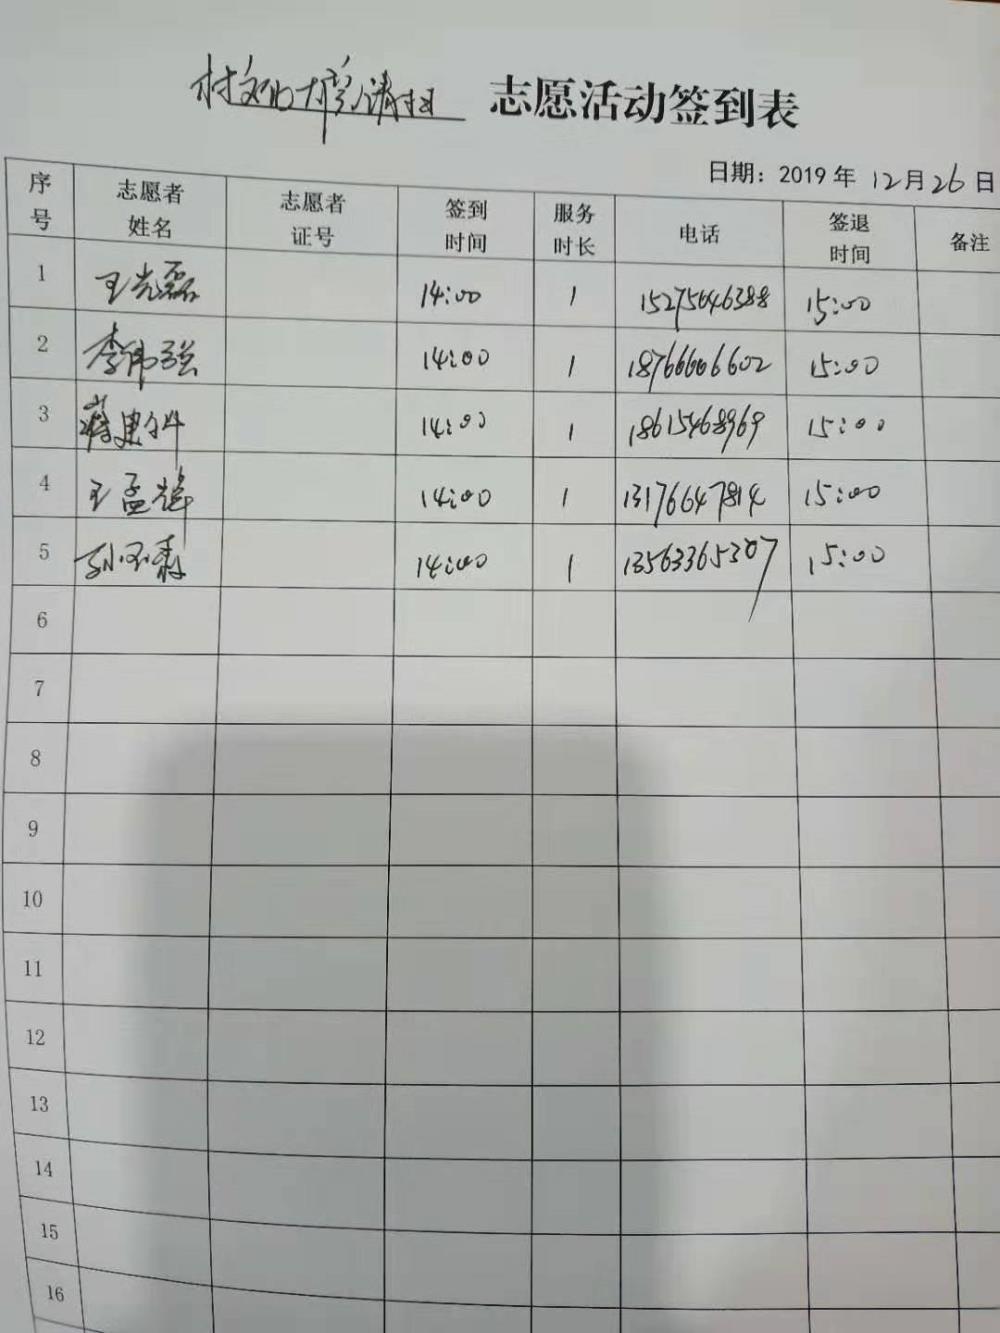 村文化大院清扫 志愿活动签到表
日期：2019年 12月26日
序号 志愿者姓名 志愿者证号 签到时间 服务时长 电话 签退时间 备注
1 王光磊 14:00 1 15275646388 15:00
2 李伟强 14:00 1 18766606602 15:00
3 蒋 14:00 1 18615468969 15:00
4 王孟辉 14:00 1 13176647814 15:00
5 孙 14:00 1 13563365307 15:00
6
7
8
9
10
11
12
13
14
15
16